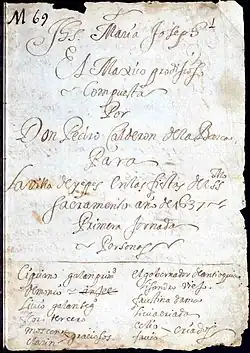 M 69
Jhs. Maria Joseph
El Maxico prodijioso
Compuesta
Por
Don Pedro Calderon de la Barca
Para
La villa de yepes en las fiestas del SS.mo
Sacramento año de 1637
Primera Jornada
Personas
Cipriano galan
Demonio
galan
tercero
moscon graciosos
clarin
el gobernador de antioquia
lisandro viejo
faustina dama
livia criada
celio criados
favio